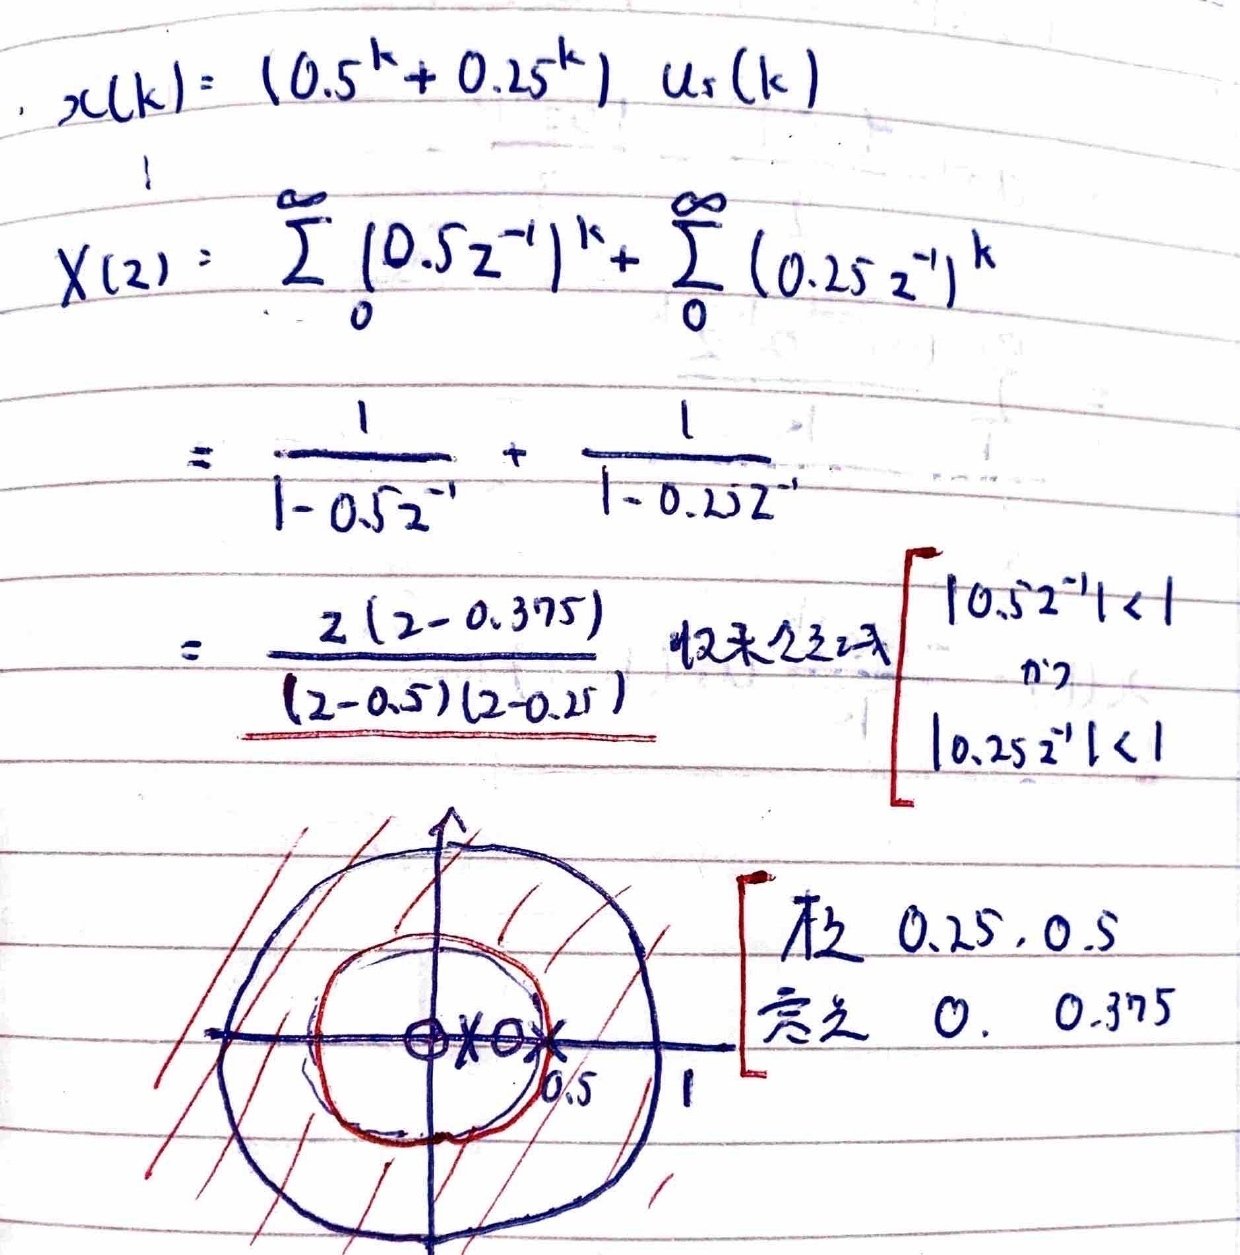 x(k) = (0.5^k + 0.25^k) us(k)
X(z) = ∞Σ0 (0.5z^-1)^k + ∞Σ0 (0.25z^-1)^k
= 1/(1-0.5z^-1) + 1/(1-0.25z^-1)
= z(z-0.375)/((z-0.5)(z-0.25)) 収束 |0.5z^-1| < 1
かつ
|0.25z^-1| < 1
極 0.25, 0.5
零点 0. 0.375
0.5 1